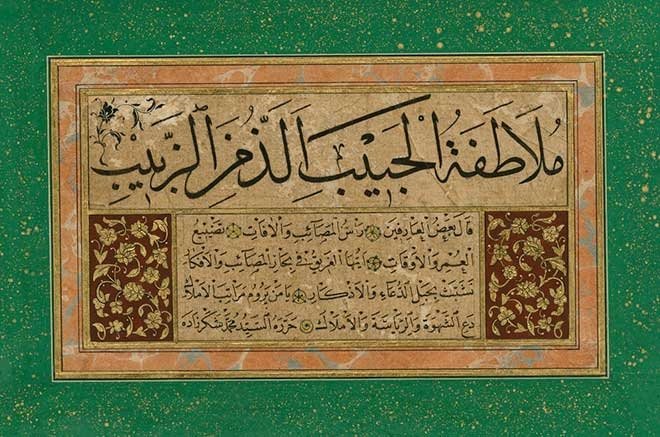 مُلَاطَفَةُ الْحَبِيْبِ اَلَذُّ مِنَ الزَّبِيْبِ
قَالَ بَعْضُ الْعَارِفِينَ رَأْسُ الْمَصَائِبِ وَالْاٰفَاتِ تَضْيِيعُ
الْعُمْرِ وَالْاَوْقَاتِ اَيُّهَا الْغَرِيقُ فِي بِحَارِ الْمَصَائِبِ وَالْاَفْكَارِ
تَشَبَّثْ بِحَبْلِ الدُّعَاءِ وَالْاَذْكَارِ يَا مَنْ يَرُومُ مَرَاتِبَ الْاَمْلَاكِ
دَعِ الشَّهْوَةَ وَالرِّيَاسَةَ وَالْاَمْلَاكَ حَرَّرَهُ السَّيِّدُ مُحَمَّدْ شَكَرْزَادَه